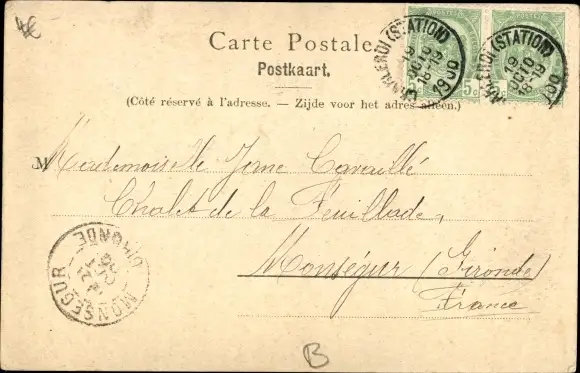 4€
Carte Postale
Postkaart.
(Côté réservé à l'adresse. — Zijde voor het adres alleen.)
CHARLEROI (STATION)
19
OCTO
18-19
1900
CHARLEROI (STATION)
19
OCTO
18-19
1900
5c
Mademoiselle Jane Cavaillé
Chalet de la Feuillade,
Monségur (Gironde)
France
MONSEGUR
GIRONDE
B